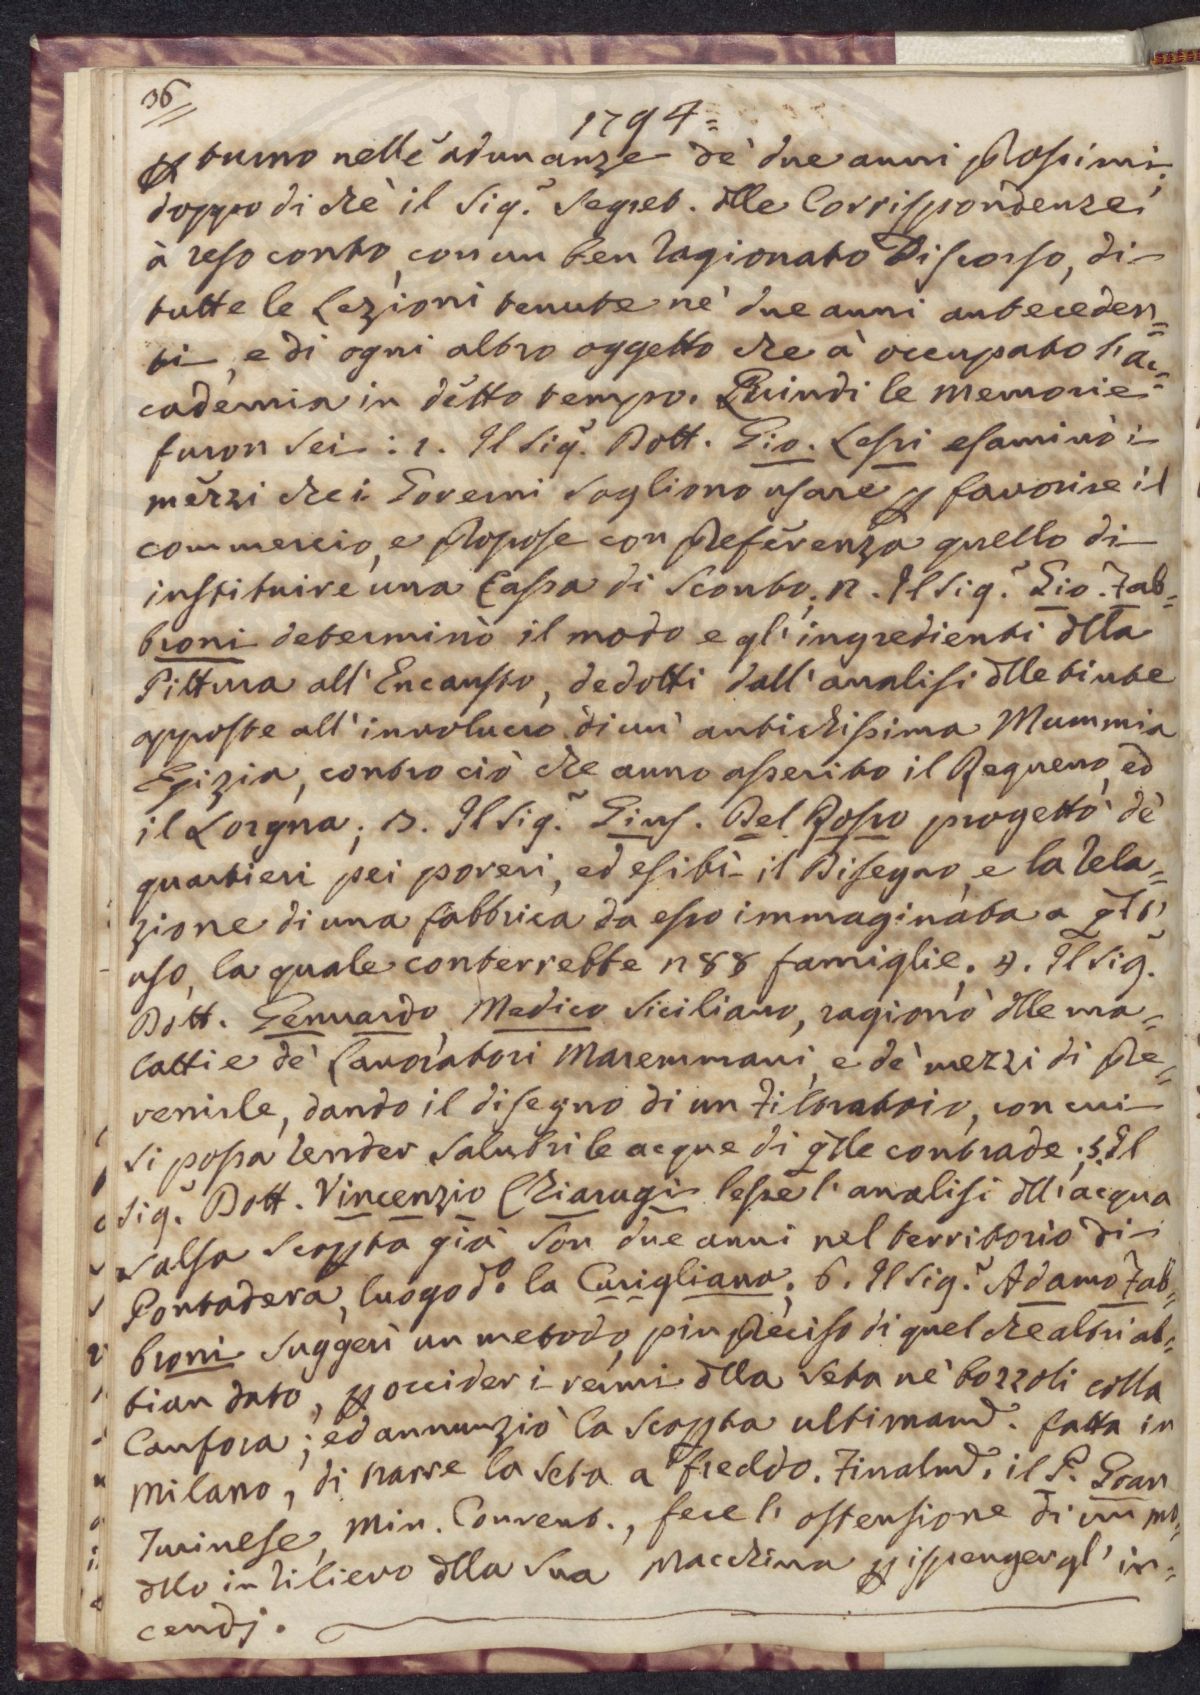 36
1794=
per turno nelle adunanze de' due anni prossimi;
doppo di chè il Sig.r Segret. dlle Corrispondenze
à reso conto, con un ben ragionato Discorso, di
tutte le Lezioni tenute ne' due anni anteceden=
ti, e di ogni altro oggetto che à occupato l'ac=
cademia in dětto tempo. Quindi le memorie
furon sei: 1. Il Sig.r Dott. Gio. Lessi esaminò i
mezzi che i Governi sogliono usare per favorire il
commercio, e propose con preferenza quello di
instituire una Cassa di Sconto; 2. Il Sig.r Gio. Fab=
broni determinò il modo e gl'ingredienti dlla
Pittura all'Encausto, dedotti dall'analisi dlle tinte
apposte all'involucro di un' antichissima Mummia
Egizia, contro ciò che anno asserito il Requeno, ed
il Lorgna; 3. Il Sig.r Gius. Del Rosso progettò de'
quartieri pei poveri, ed esibì il Disegno, e la rela=
zione di una fabbrica da esso immaginata a qto
uso, la quale conterrebbe 288 famiglie. 4. Il Sig.r
Dott. Gennardo, Medico Siciliano, ragionò dlle ma=
lattie de' Lavoratori Maremmani, e de' mezzi di pre=
venirle, dando il disegno di un Filtratoio, con cui
si possa render salubri le acque di qlle contrade; 5. Il
Sig.r Dott. Vincenzio Chiarugi lesse l'analisi dll'acqua
salsa scopta già son due anni nel territorio di
Pontadera, luogo do. la Curigliana; 6. Il Sig.r Adamo Fab=
broni suggerì un metodo, più preciso di quel che altri ab=
bian dato, per occider i vermi dlla seta ne' bozzoli colla
Canfora; ed annunziò la scopta ultimamd. fatta in
Milano, di trarre la seta a freddo. Finalmd. il P. Gran
Turinese, Min. Convent., fece l'ostensione di un mo=
dllo in rilievo dlla sua Macchina per ispenger gl'in=
cendj.